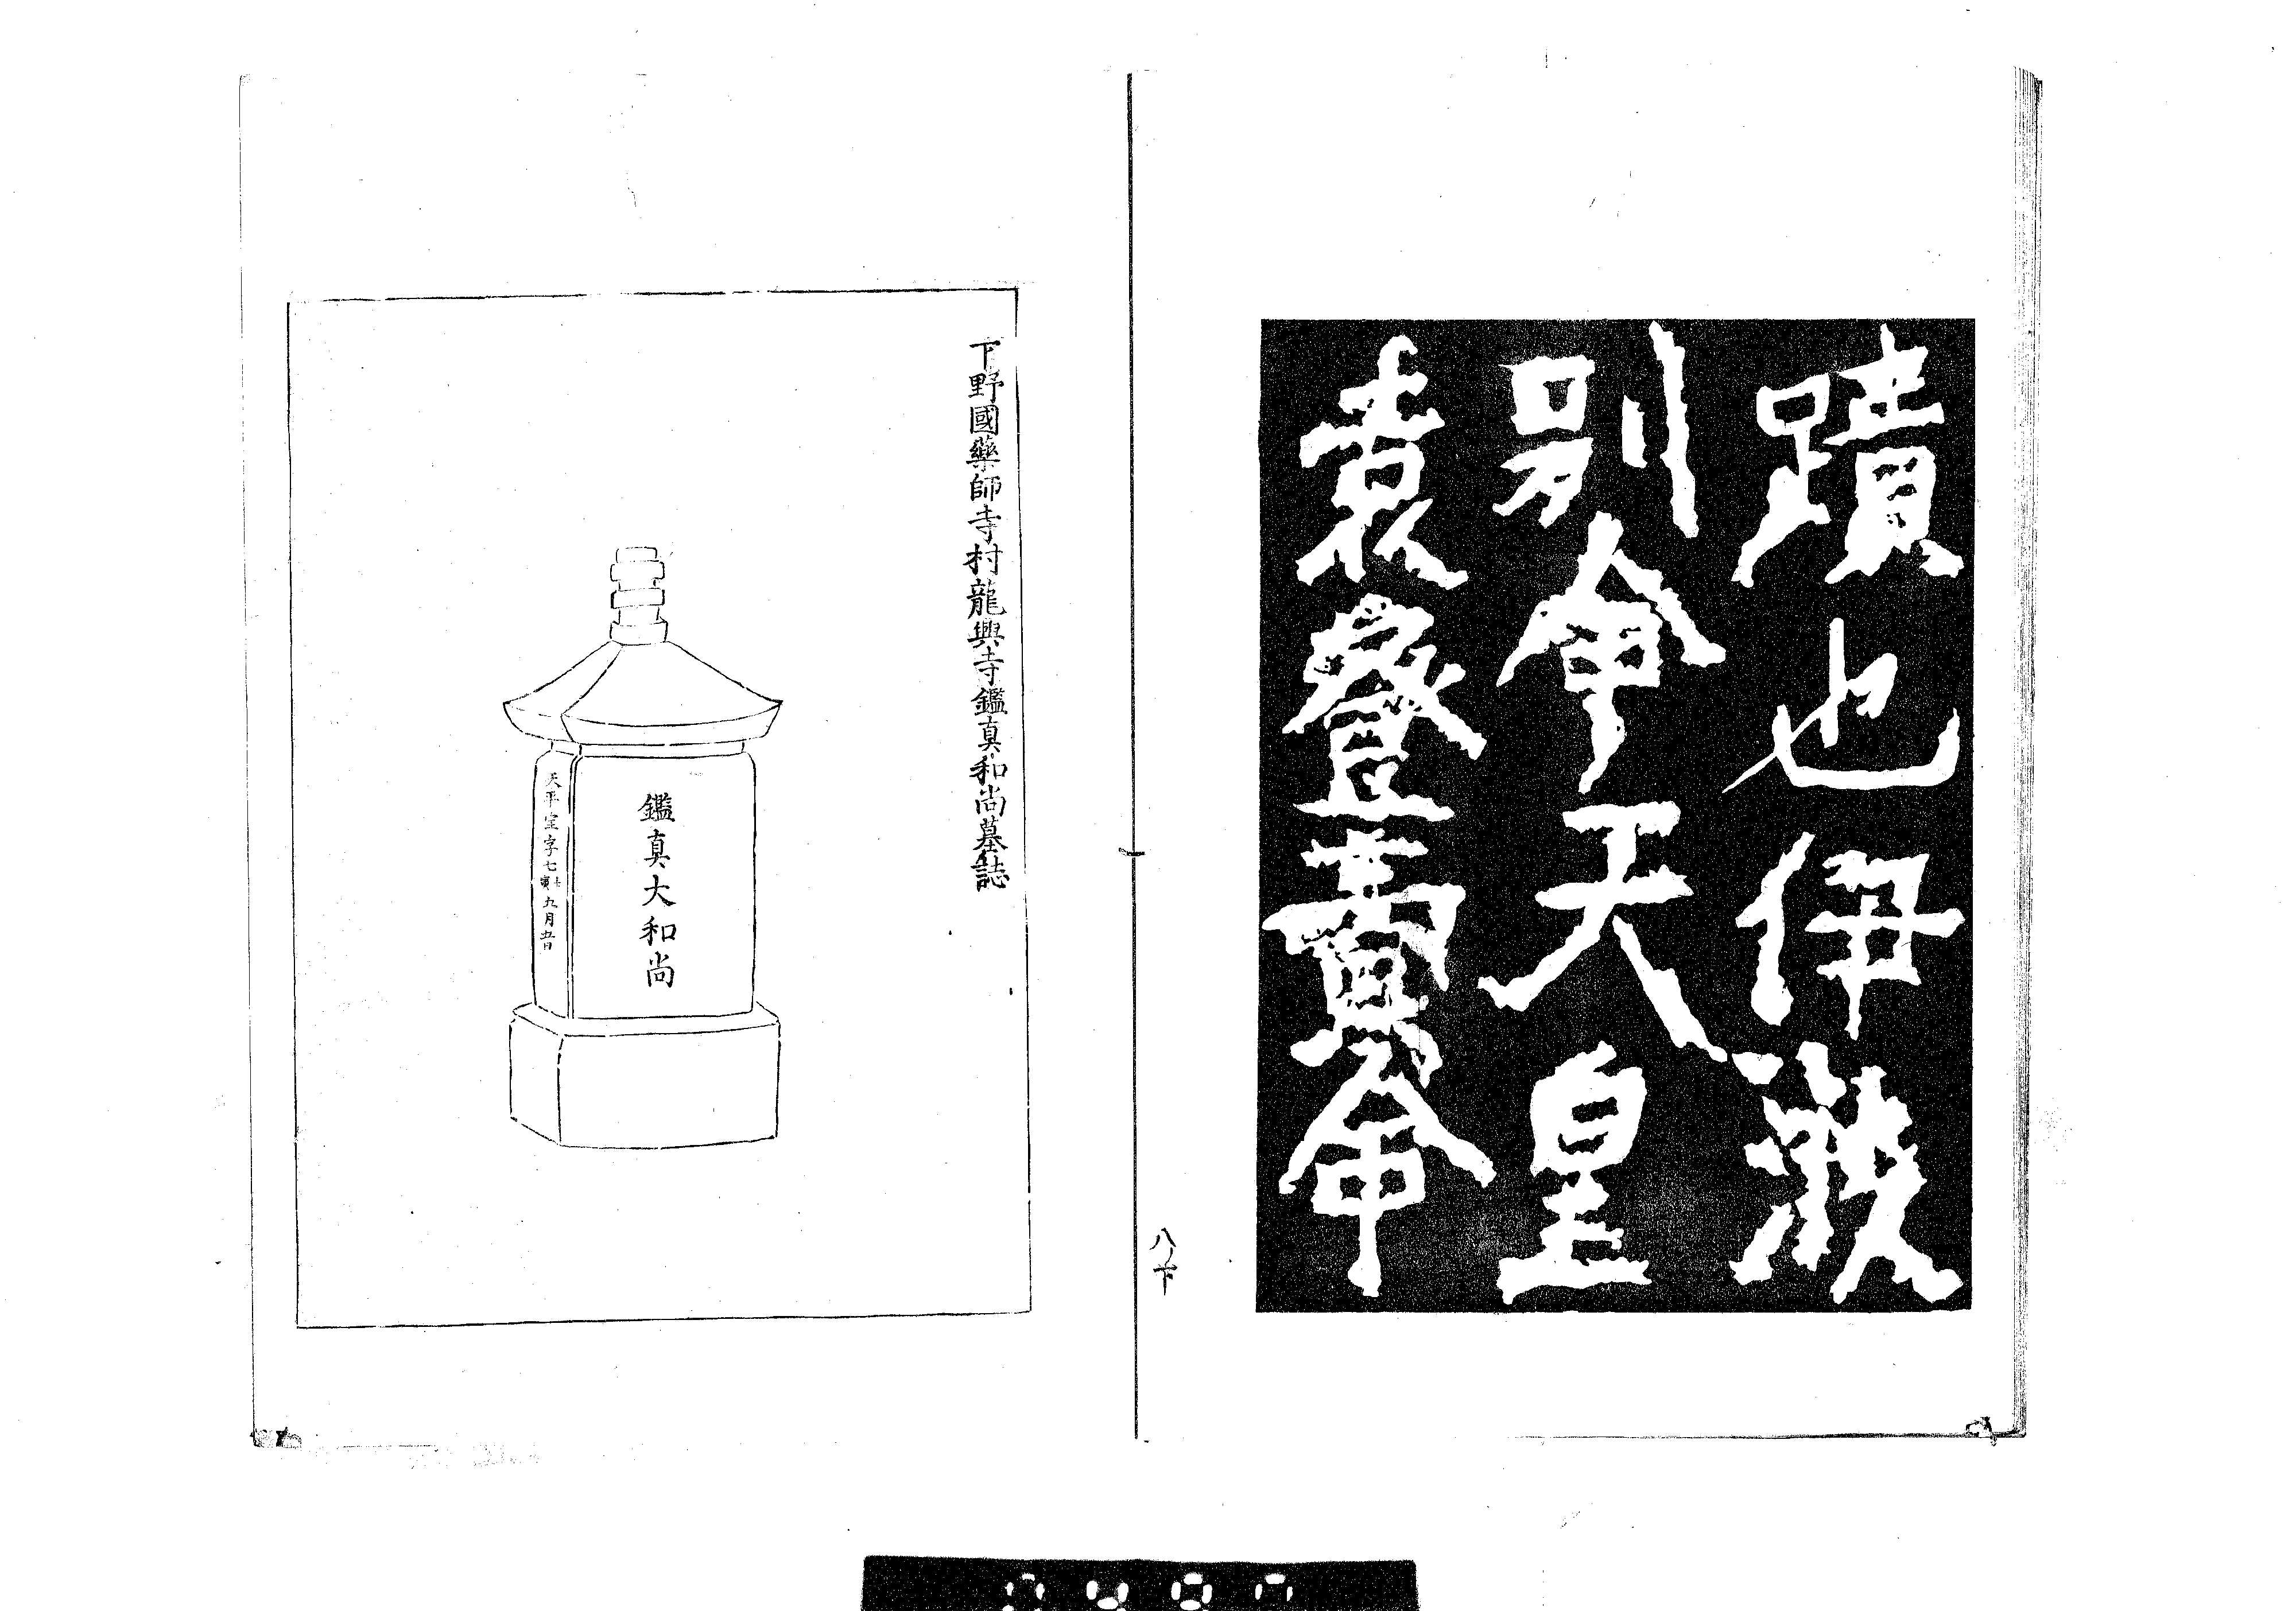 蹟也伊
別命天皇
袁登賣命
八ノ下
下野國藥師寺村龍興寺鑑真和尚墓誌
鑑真大和尚
天平宝字七九月五日